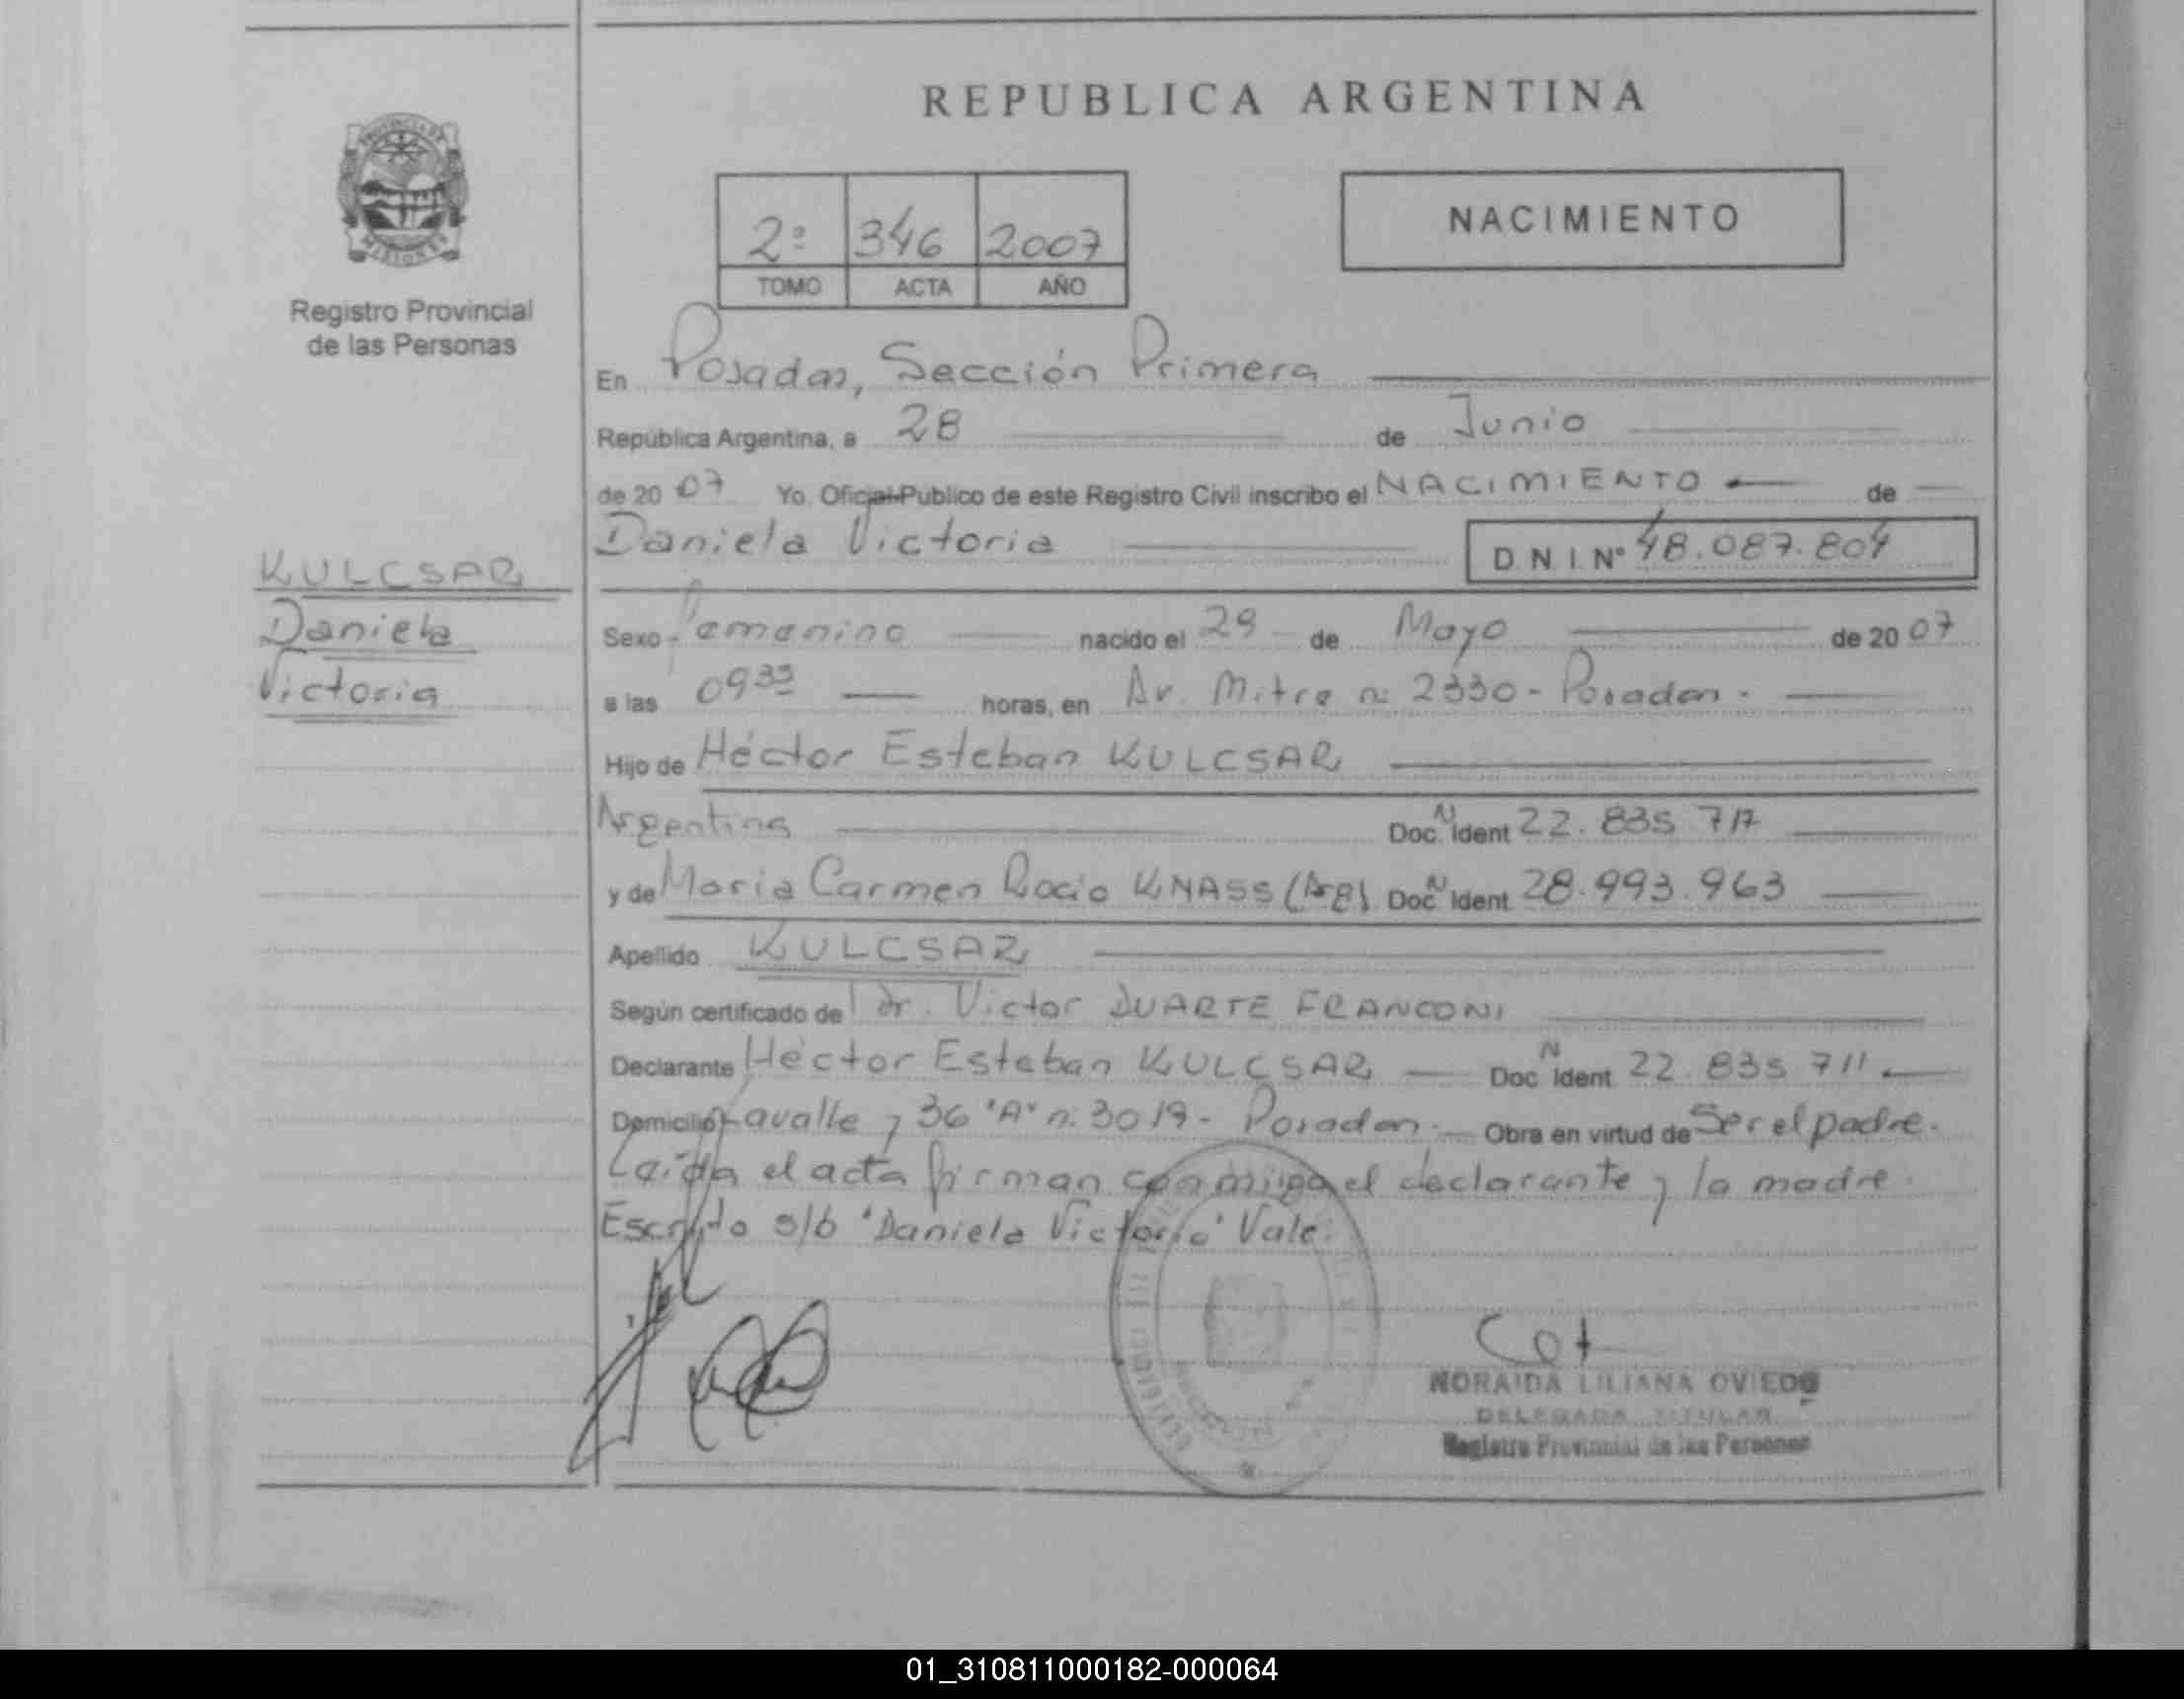 REPUBLICA ARGENTINA
PROVINCIA DE
MISIONES
Registro Provincial
de las Personas
2º 346 2007
TOMO ACTA AÑO
NACIMIENTO
En Posadas, Sección Primera
República Argentina, a 28 de Junio
de 2007 Yo, Oficial Publico de este Registro Civil inscribo el NACIMIENTO de
Daniela Victoria
D N I Nº 48.087.804
KULCSAR
Daniela
Victoria
Sexo Femenino nacido el 29 de Mayo de 2007
a las 09 35 horas, en Av. Mitre nº 2330 - Posadas.
Hijo de Héctor Esteban KULCSAR
Argentina Doc. N Ident 22.835 711
y de Maria Carmen Rocio KNASS (Arg) Doc N Ident 28.993.963
Apellido KULCSAR
Según certificado de Dr. Victor DUARTE FRANCONI
Declarante Héctor Esteban KULCSAR Doc N Ident 22 835 711
Domicilio Lavalle y 36 "A" n. 3019 - Posadas. Obra en virtud de Ser el padre.
Leída el acta firman conmigo el declarante y la madre.
Escrito s/b "Daniela Victoria" Vale.
NORAIDA LILIANA OVIEDO
DELEGADA TITULAR
Registro Provincial de las Personas
01_310811000182-000064